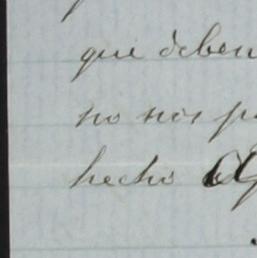 que deben
no nos p
hecho